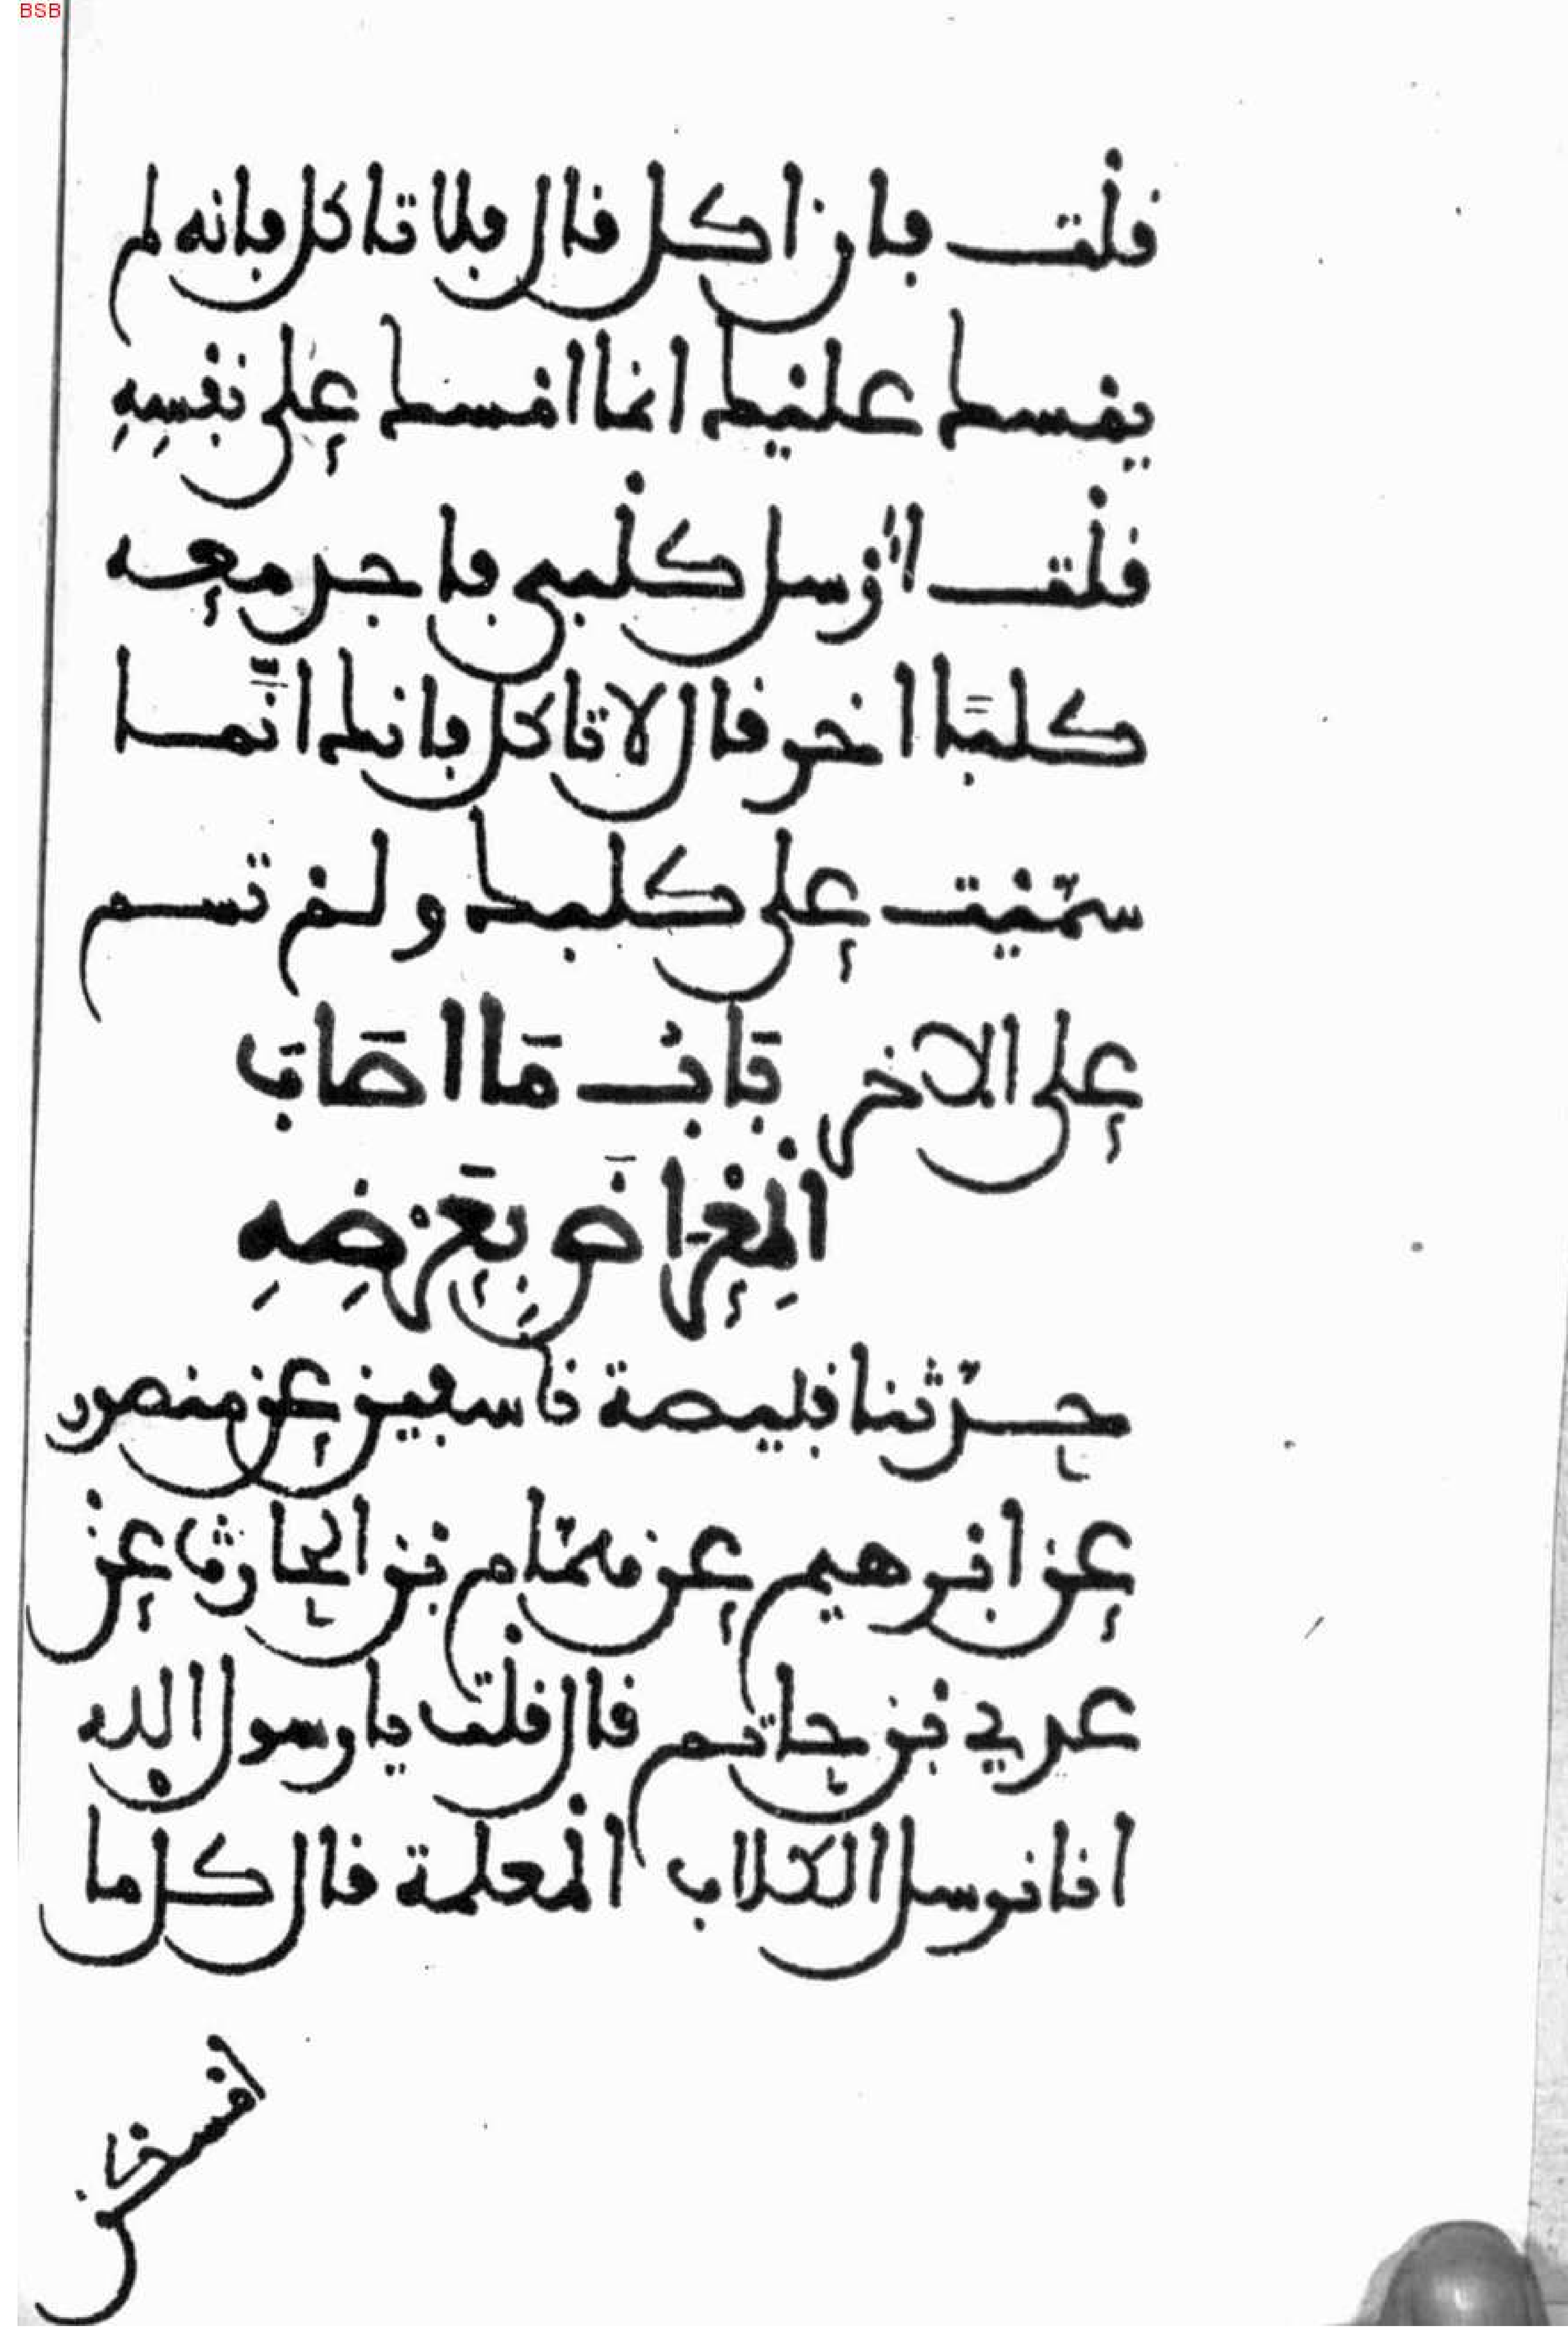 BSB
قلْت فان اكل قال فلا تاكل فانه لم
يمسك عليْك انما امْسك على نفْسِهِ
قلْت اُرْسل كلْبي فاجد معه
كلبًا اخر قال لا تاكل فانك انَّما
سمّيْت على كلبك ولمْ تسم
على الاخر بَابُ مَا اصَابَ
الْمِعْرَاضُ بِعَرْضِهِ
حدّثنا قبيصة نا سفين عن منصور
عن ابرهيم عن همّام بن الحارث عنْ
عدي بن حاتم قال قلْت يا رسول الله
انا نرسل الكلاب الْمعلمة قال كلْ ما
امْسكن